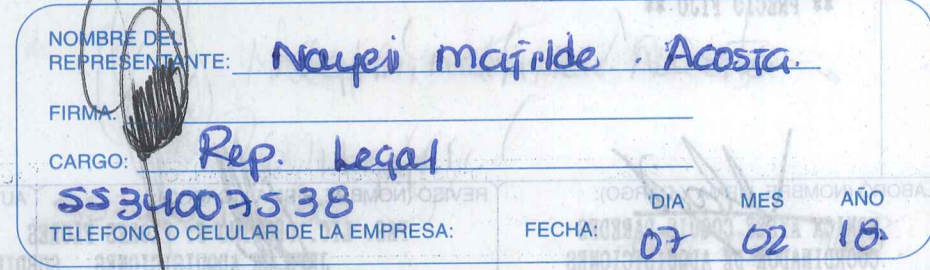 NOMBRE DEL
REPRESENTANTE: Nayei Matilde . Acosta.
FIRMA:
CARGO: Rep. Legal
5534007538
DIA MES AÑO
TELEFONO O CELULAR DE LA EMPRESA: FECHA: 07 02 18.